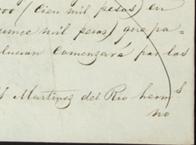 (Cien mil pesos) en
mil pesos) que pa-
comenzará por los
Martinez del Rio hermˢ
no